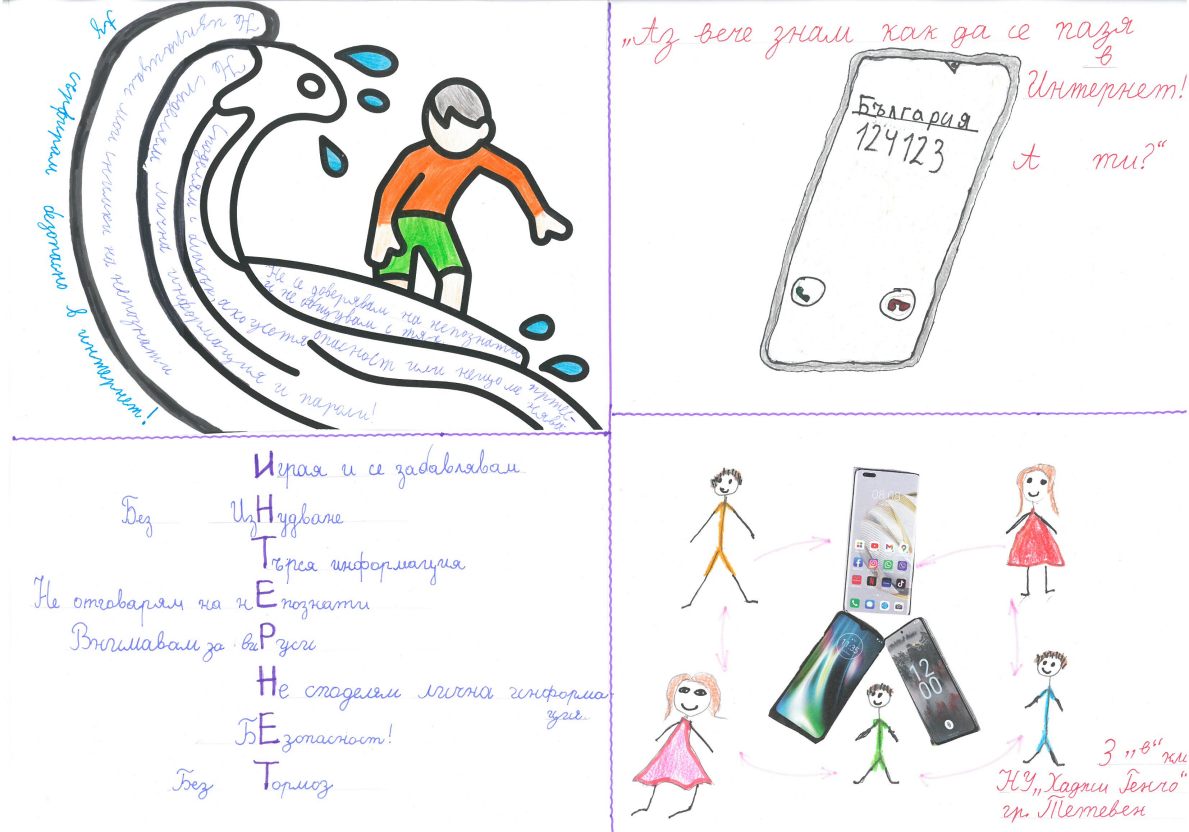 Аз сърфирам безопасно в интернет!
Не изпращам мои снимки на непознати
Не споделям лична информация и пароли!
Споделям с близък ако усетя опасност или нещо ме прите-
Не се доверявам на непознати
и не общувам с тях
„Аз вече знам как да се пазя
в
Интернет!
А ти?“
България
124123
Играя и се забавлявам
Без ИзНудване
Търся информация
Не отговарям на нЕпознати
Внимавам за виРуси
Не споделям лична информа
ция.
БЕзопасност!
Без Тормоз
08:00
11:35
12
00
3 „в“ кл
НУ „Хаджи Генчо“
гр. Тетевен